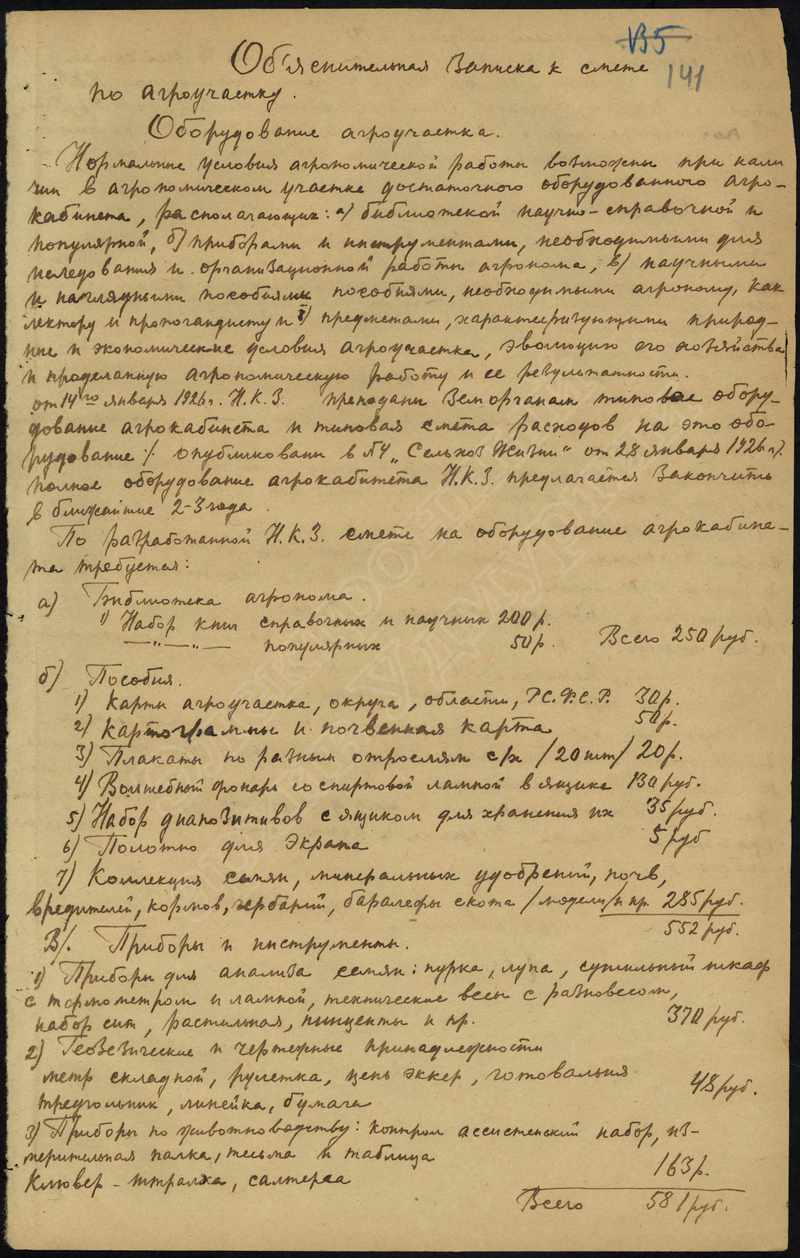 В5
141
Объяснительная Записка к смете
по агроучастку.
Оборудование агроучастка.
Нормальные условия агрономической работы возможны при нали
чии в агрономическом участке достаточного оборудованного агро-
кабинета, располагающих: а) библиотекой научно-справочной и
популярной, б) приборами и инструментами, необходимыми для
исследования и организационной работы агронома, в) научными
и наглядными пособиями пособиями, необходимыми агроному, как
лектору и пропогандисту и г) предметами, характеризующими природ-
ные и экономические условия агроучастка, эволюцию его хозяйства
и проделанную агрономическую работу и ее результатности.
от 14го января 1926 г. Н.К.З. преподаны Земорганам типовое обору-
дование агрокабинета и типовая смета расходов на это обо-
рудование /опубликованы в №4 „Сельхоз Жизни" от 28 января 1926 г/.
полное оборудование агрокабинета Н.К.З. предлагается Закончить
в ближайшие 2-3 года.
По разработанной Н.К.З. смете на оборудование агрокабине-
та требуется:
а) Библиотека агронома.
1) Набор книг справочных и научных 200 р.
—"—"— популярных 50 р. Всего 250 руб.
б) Пособия.
1) Карты агроучастка, округа, области, Р.С.Ф.С.Р. 30 р.
2) Картограммы и почвенная карта 50 р.
3) Плакаты по разным отрослям с/х /20 шт/ 20 р.
4) Волшебный фонарь со спиртовой лампой в ящике 130 руб.
5) Набор диапозитивов с ящиком для хранения их 35 руб.
6) Полотно для Экрана 5 руб
7) Коллекция семян, минеральных удобрений, почв,
вредителей, кормов, гербарий, барельефы скота /модели/ и пр. 285 руб.
552 руб.
В/. Приборы и инструменты.
1) Приборы для анализа семян: пурка, лупа, сушильный шкаф
с термометром и лампой, технические весы с разновесом,
набор сит, растильная, пинцеты и пр. 370 руб.
2) Геодезические и чертежные принадлежности
метр складной, рулетка, цепь эккер, готовальня
треугольник, линейка, бумага 48 руб.
3) Приборы по животноводству: контрол ассистенский набор, из-
мерительная палка, тесьма и таблица
Клювер-штралха, 163 р.
Всего 581 руб.